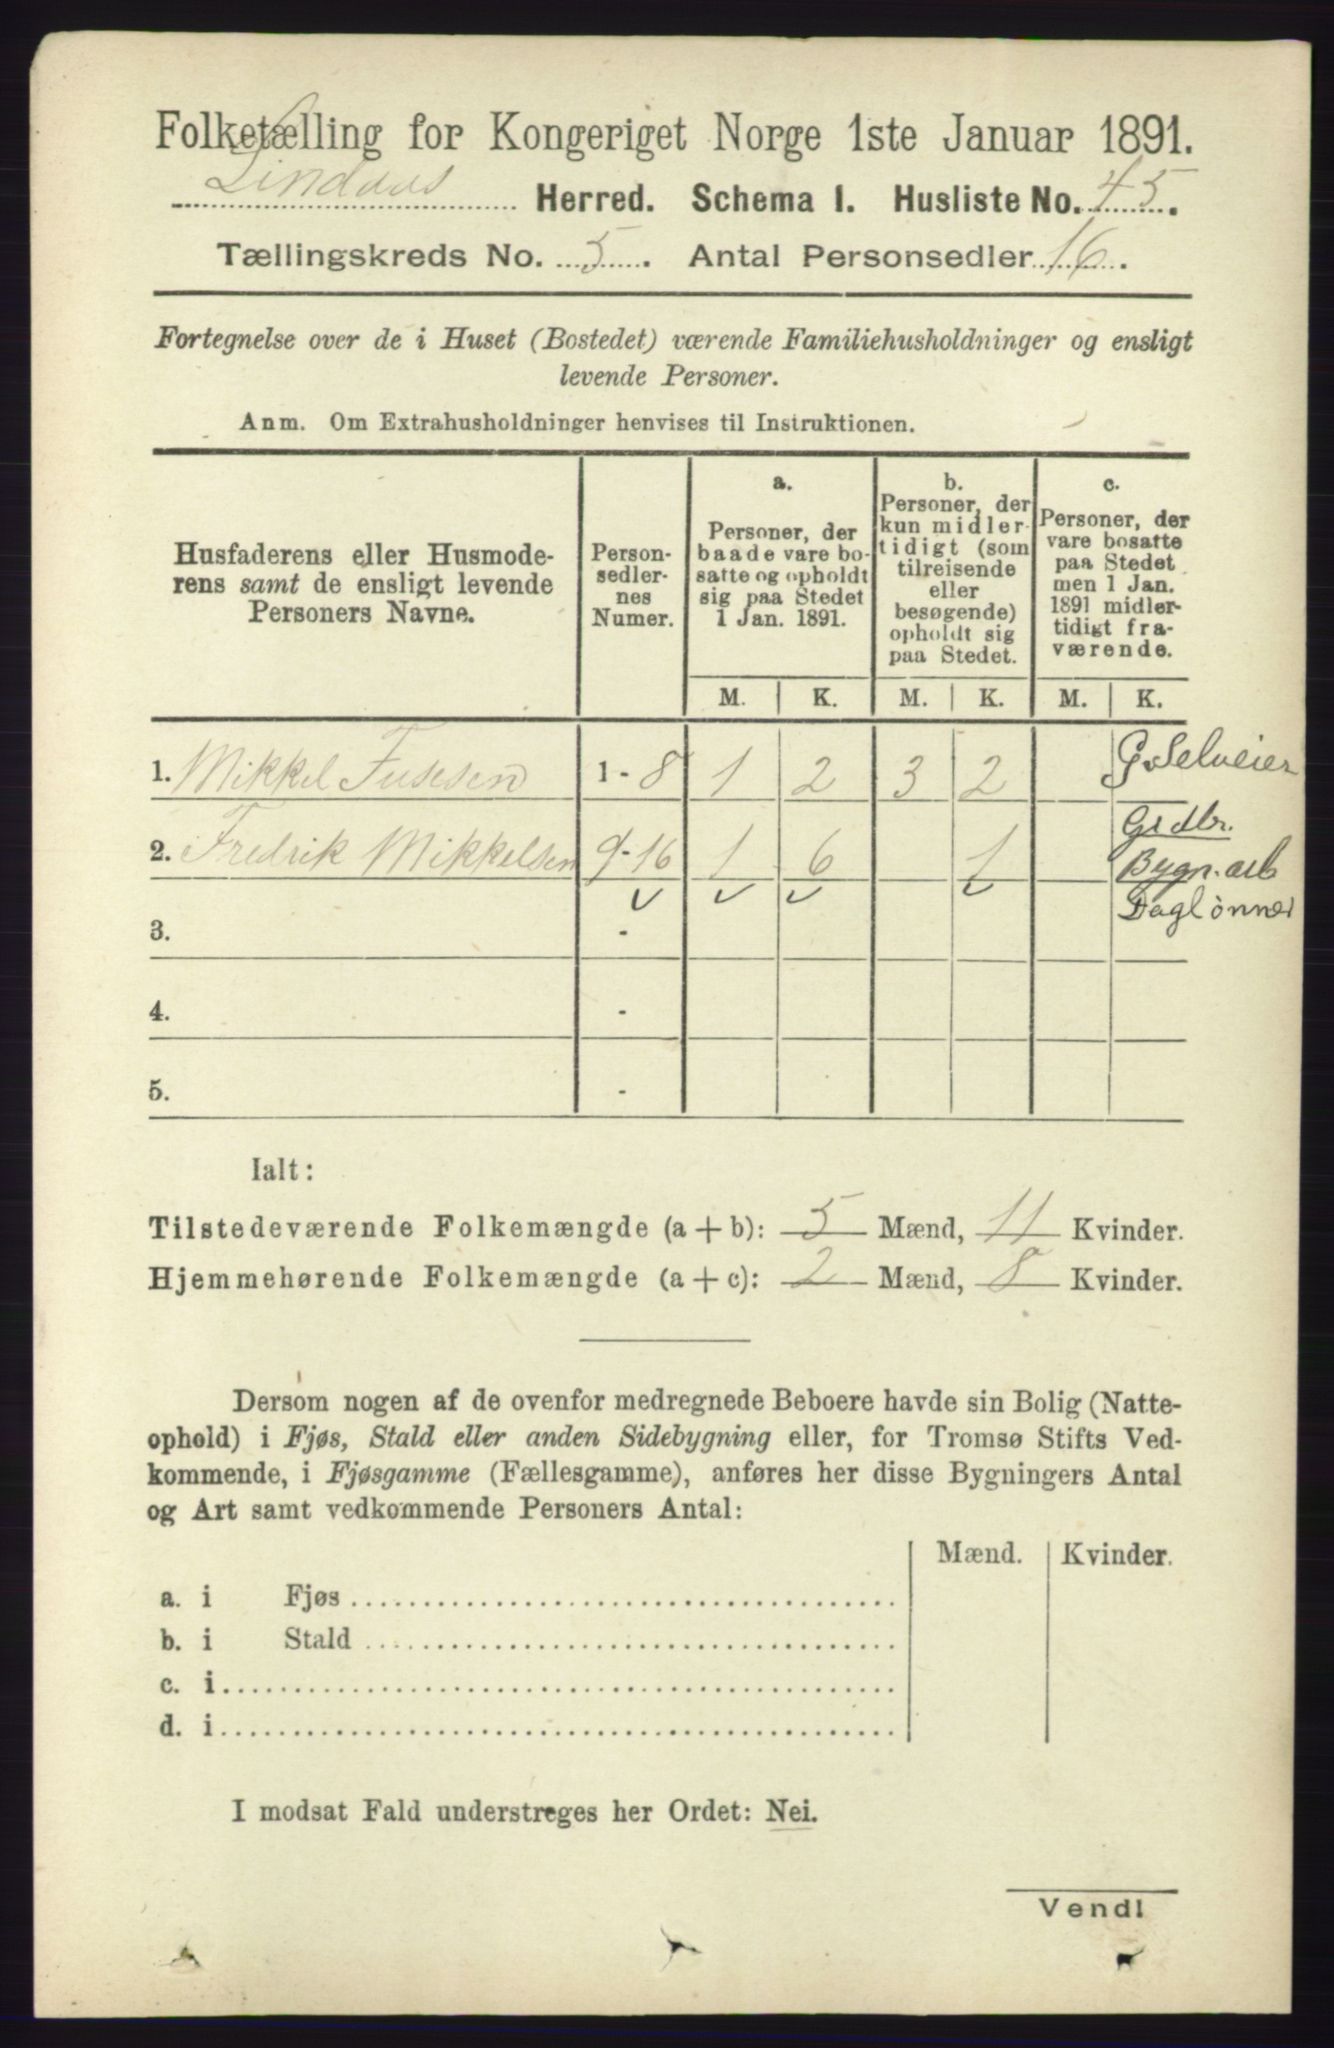 Folketælling for Kongeriget Norge 1ste Januar 1891.
Lindaas Herred. Schema 1. Husliste No. 45.
Tællingskreds No. 5. Antal Personsedler 16.
Fortegnelse over de i Huset (Bostedet) værende Familiehusholdninger og ensligt
levende Personer.
Anm. Om Extrahusholdninger henvises til Instruktionen.
Husfaderens eller Husmode-
rens samt de ensligt levende
Personers Navne.
Person-
sedler-
nes
Numer.
a.
Personer, der
baade vare bo-
satte og opholdt
sig paa Stedet
1 Jan. 1891.
b.
Personer, der
kun midler-
tidigt (som
tilreisende
eller
besøgende)
opholdt sig
paa Stedet.
c.
Personer, der
vare bosatte
paa Stedet
men 1 Jan.
1891 midler-
tidigt fra-
værende.
M. K. M. K. M. K.
1. Mikkel 1-8 1 2 3 2 G. Selveier
2. Fredrik Mikkelsen 9-16 1 6 1 Grdbr.
Bygn. arb
Daglønner
3. -
4. -
5. -
Ialt:
Tilstedeværende Folkemængde (a + b): 5 Mænd, 11 Kvinder.
Hjemmehørende Folkemængde (a + c): 2 Mænd, 8 Kvinder.
Dersom nogen af de ovenfor medregnede Beboere havde sin Bolig (Natte-
ophold) i Fjøs, Stald eller anden Sidebygning eller, for Tromsø Stifts Ved-
kommende, i Fjøsgamme (Fællesgamme), anføres her disse Bygningers Antal
og Art samt vedkommende Personers Antal:
Mænd. Kvinder.
a. i Fjøs
b. i Stald
c. i
d. i
I modsat Fald understreges her Ordet: Nei.
Vend!